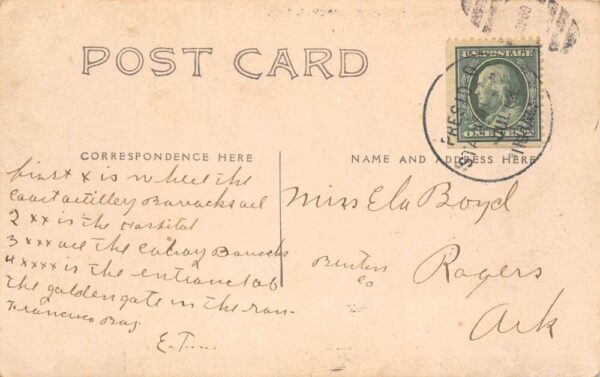 POST CARD
U.S. POSTAGE
ONE CENT
PRESIDIO
STA.
JUL
CORRESPONDENCE HERE
NAME AND ADDRESS HERE
first x is where the
coast actilley Barracks are
2 xx is the Hospital
3 xxx are the calvary Barracks
4 xxxx is the entrance to
the golden gate in the San-
Francisco Bay.
E.T.
Miss Ela Boyd
Benton
Co
Rogers
Ark